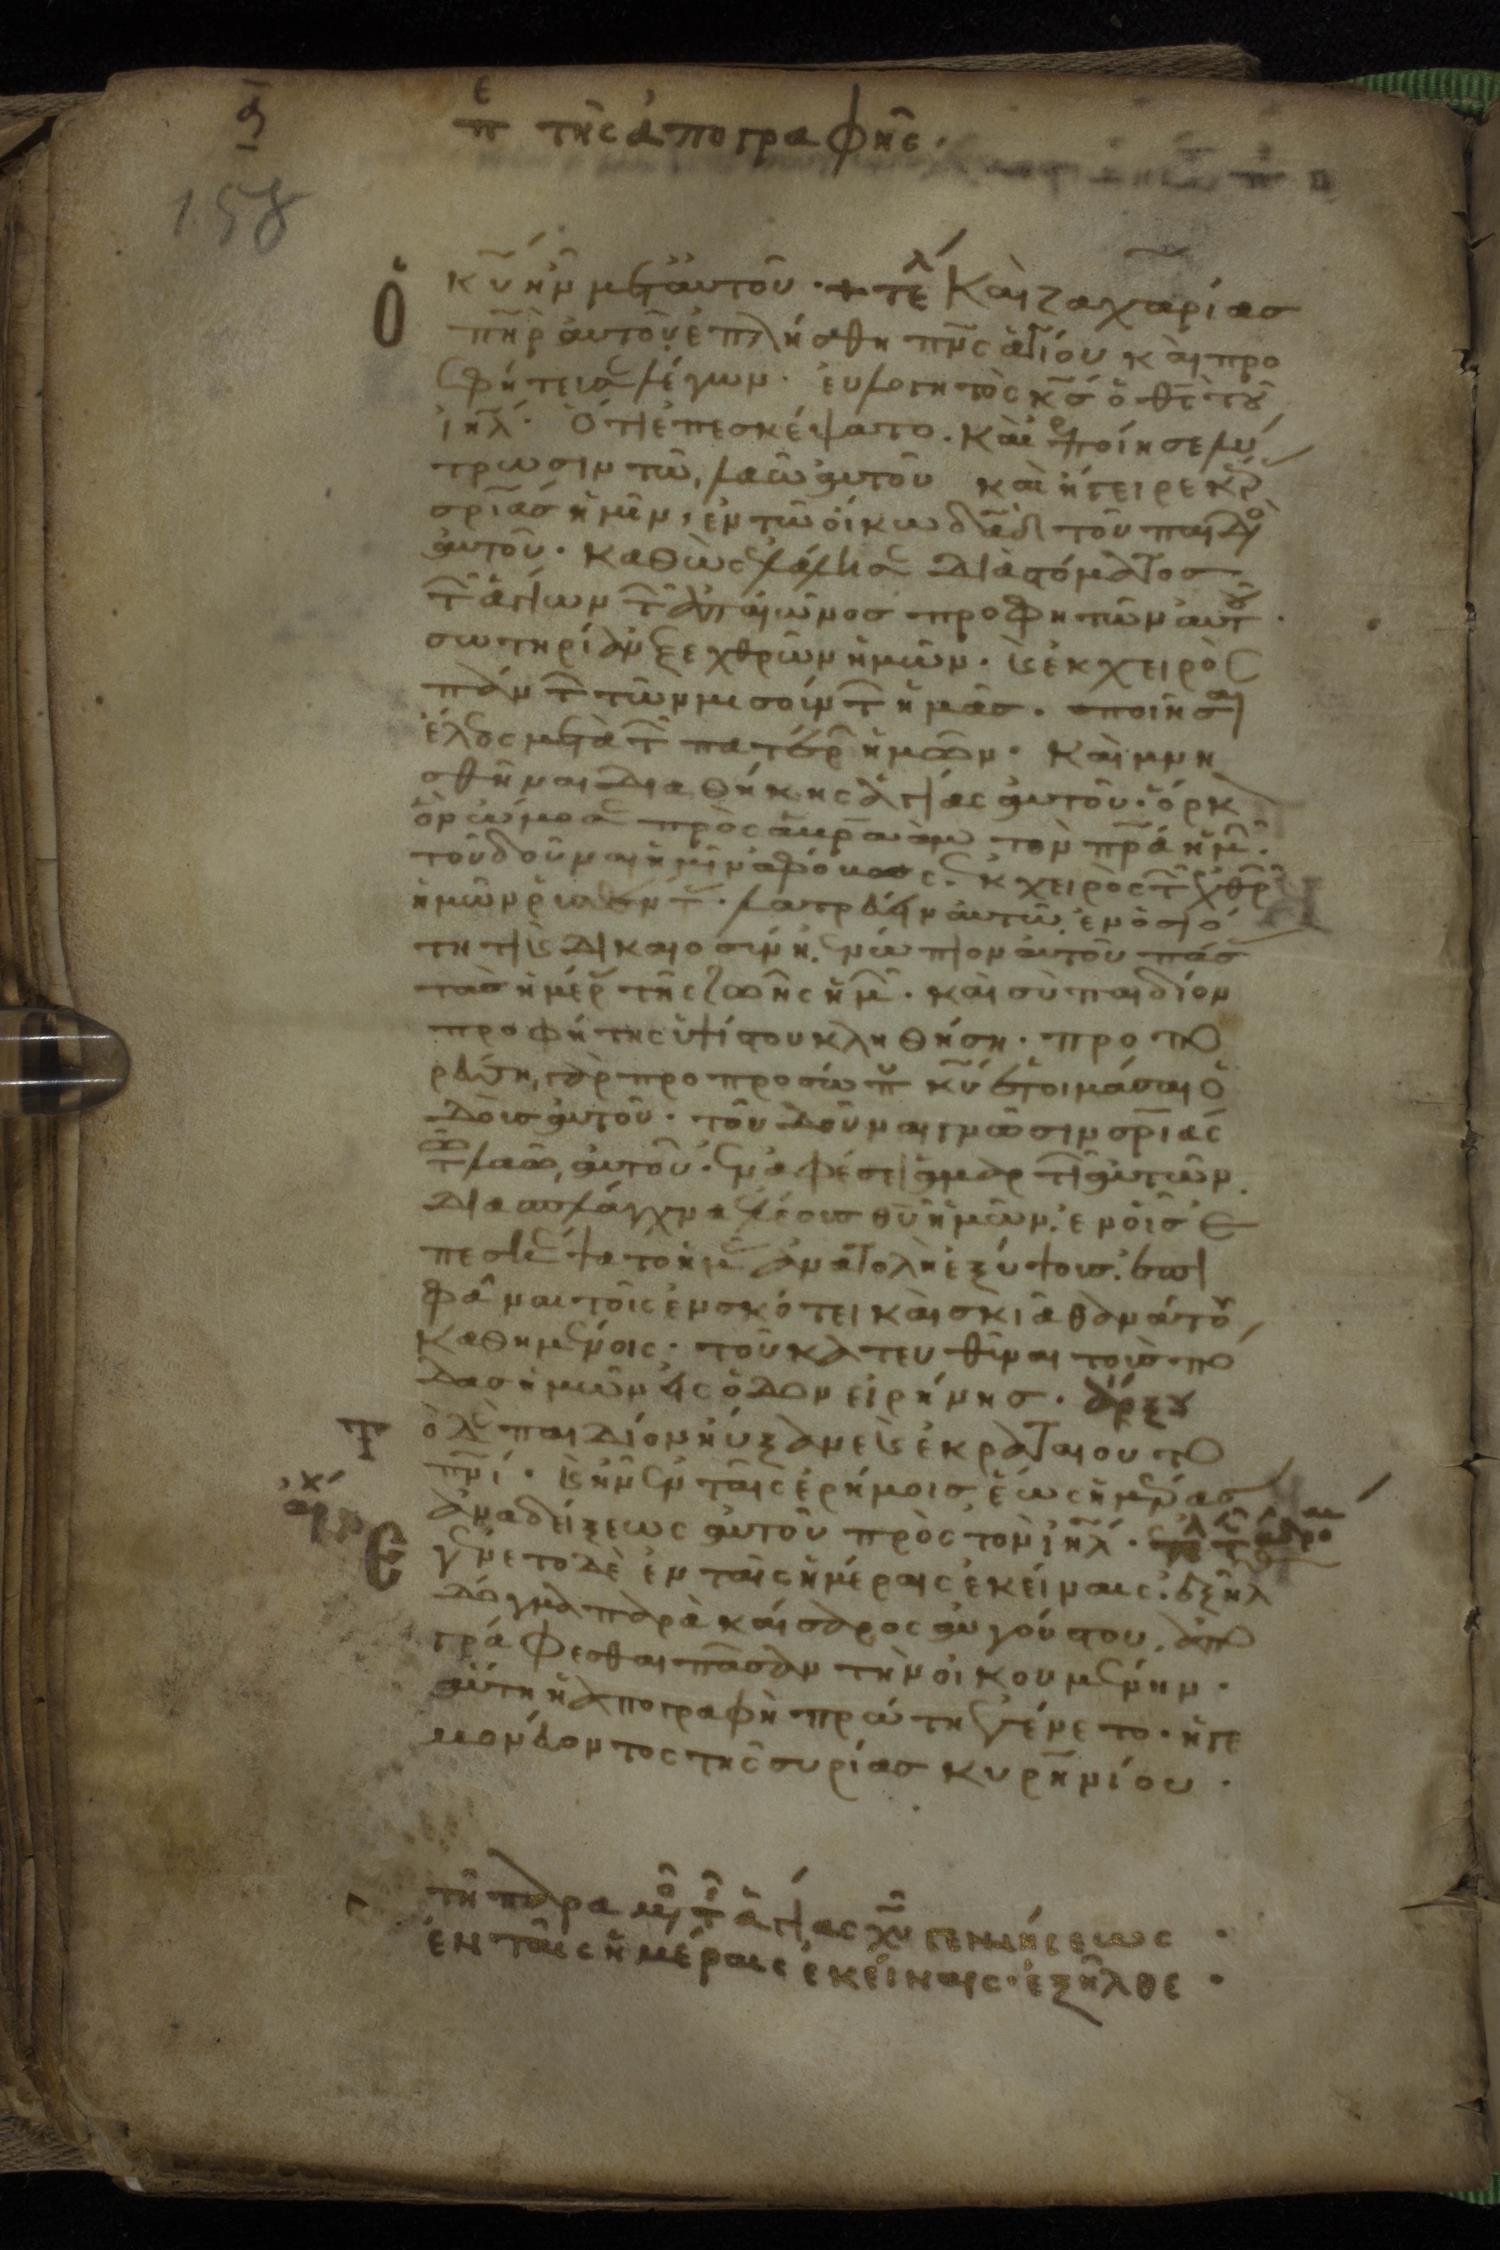 περὶ τῆς ἀπογραφῆς·
158
κ̅υ̅ ἦν μετ' αὐτοῦ· τε λ Καὶ ζαχαρίας
ὁ π̅η̅ρ̅ αὐτοῦ ἐπλήσθη π̅ν̅ς̅ ἁγίου καὶ προ
φήτευσε λέγων· εὐλογητὸς κ̅ς̅ ὁ θ̅ς̅ τοῦ
ι̅η̅λ̅· ὅτι ἐπεσκέψατο. καὶ ἐποίησε λύ
τρωσιν τῶ λαῶ αὐτοῦ καὶ ἤγειρε κέρ
σ̅ρ̅ι̅ας ἡμῖν, ἐν τῶ οἴκω δ̅α̅δ̅ τοῦ παιδὸ
αὐτοῦ· καθὼς ἐλάλησε διὰ στόματος
τῶν ἁγίων τῶν ἀπ' αἰῶνος προφητῶν αὐτοῦ·
σωτηρίαν ἐξ ἐχθρῶν ἡμῶν· καὶ ἐκ χειρὸς
πάντων τῶν μισούντων ἡμᾶς· ποιῆσαι
ἔλεος μετὰ τῶν πατέρων ἡμῶν· Καὶ μνη
σθῆναι διαθήκης ἁγίας αὐτοῦ· ὅρκ
ὃν ὤμοσε πρὸς ἀβραὰμ τὸν π̅ρ̅α̅ ἡμῶν·
τοῦ δοῦναι ἡμῖν ἀφόβως. ἐκ χειρὸς τῶν ἐχθρῶν
ἡμῶν ῥυσθέντ. λατρεύειν αὐτῶ ἐν ὁσιό
τητι καὶ δικαιοσύνη. ἐνώπιον αὐτοῦ πάσ
τὰς ἡμέρας τῆς ζωῆς ἡμῶν· καὶ σὺ παιδίον
προφήτης ὑψίστου κληθήση· προπο
ρεύση γὰρ πρὸ προσώπου κ̅υ̅ ἑτοιμάσαι ὁ
δοὺς αὐτοῦ· τοῦ δοῦναι γνῶσιν σ̅ρ̅ι̅ας
τῶ λαῶ αὐτοῦ· ἐν ἀφέσει ἁμαρτιῶν αὐτῶν.
διὰ σπλάγχνα ἐλέους θ̅υ̅ ἡμῶν· ἐν οἷς ἐ
πεσκέψατο ἡμᾶς ἀνατολὴ ἐξ ὕψους· ἐπι
φᾶναι τοῖς ἐν σκότει καὶ σκιᾶ θανάτου
καθημένοις· τοῦ κατευθῦναι τοὺς πό
δας ἡμῶν εἰς ὁδὸν εἰρήνης· ἄρξου
Τὸ δὲ παιδίον ηὔξανε καὶ ἐκραταιοῦτο
π̅ν̅ι̅· καὶ ἦν ἐν ταῖς ἐρήμοις ἕως ἡμέρας
ἀναδείξεως αὐτοῦ πρὸς τὸν ι̅η̅λ̅·
ἀρχ
Ἐγένετο δὲ ἐν ταῖς ἡμέραις ἐκείναις· ἐξῆλ
δόγμα παρὰ καίσαρος αὐγούστου. ἀπο
γράφεσθαι πᾶσαν τὴν οἰκουμένην·
αὕτη ἡ ἀπογραφὴ πρώτη ἐγένετο· ἡγε
μονεύοντος τῆς συρίας κυρηνίου·
τῆ παραμονῆ τῆς ἁγίας χ̅υ̅ γεννήσεως·
ἐν ταῖς ἡμέραις ἐκείναις· ἐξῆλθε·